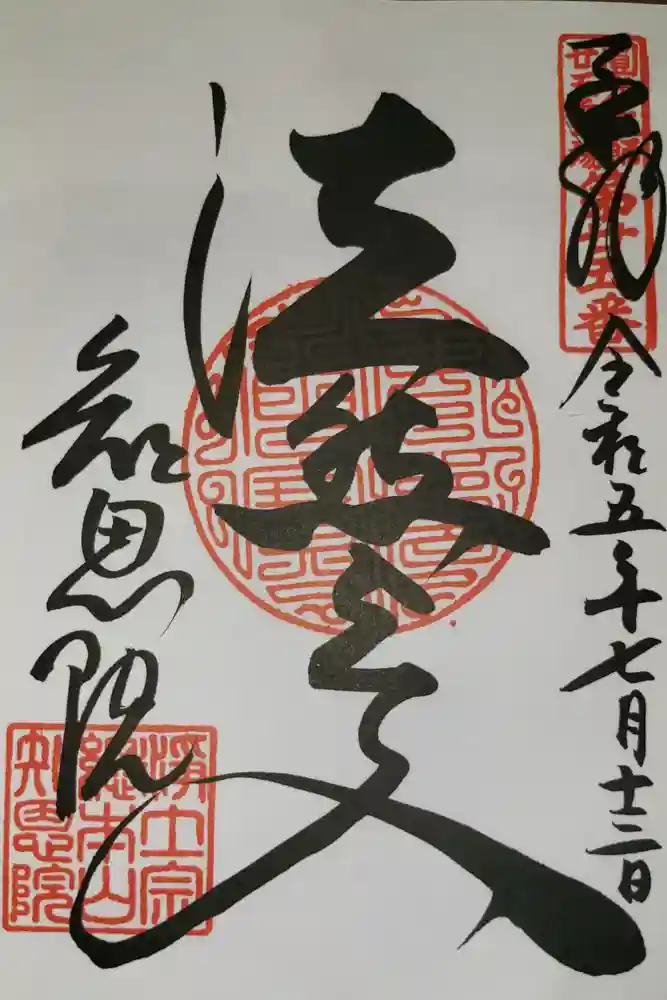 奉拝
第廿五番
令和五年七月十二日
法然上人
知恩院
淨土宗
總本山
知恩院